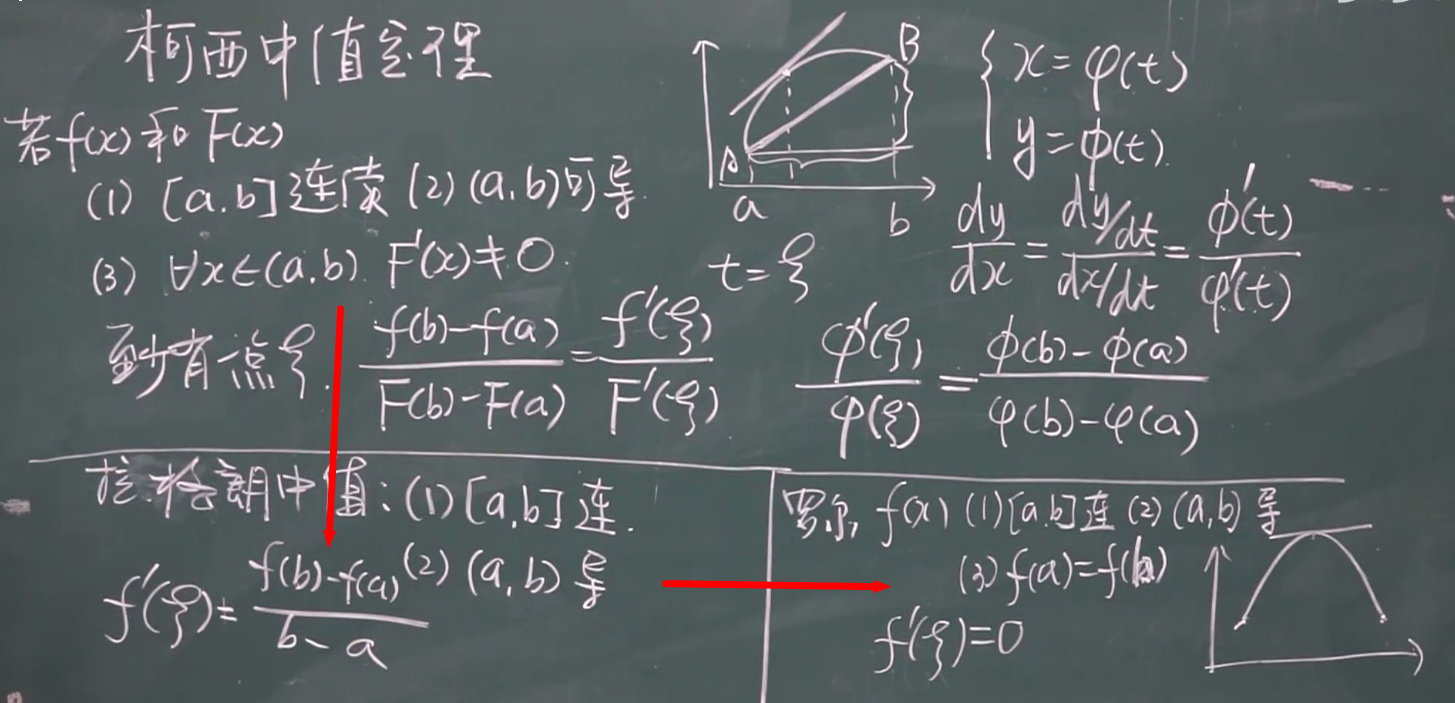 柯西中值定理
若f(x)和F(x)
(1) [a.b]连续 (2) (a.b)可导.
(3) ∀x∈(a.b). F'(x)≠0.
至少有一点ξ. (f(b)-f(a))/(F(b)-F(a)) = f'(ξ)/F'(ξ)
A B
a b
t=ξ
{ x=φ(t)
y=ϕ(t).
dy/dx = (dy/dt)/(dx/dt) = ϕ'(t)/φ'(t)
ϕ'(ξ)/φ'(ξ) = (ϕ(b)-ϕ(a))/(φ(b)-φ(a))
拉格朗中值: (1) [a,b]连.
(2) (a,b)导
f'(ξ)= (f(b)-f(a))/(b-a)
罗尔, f(x) (1) [a.b]连 (2) (a,b)导
(3) f(a)=f(b)
f'(ξ)=0